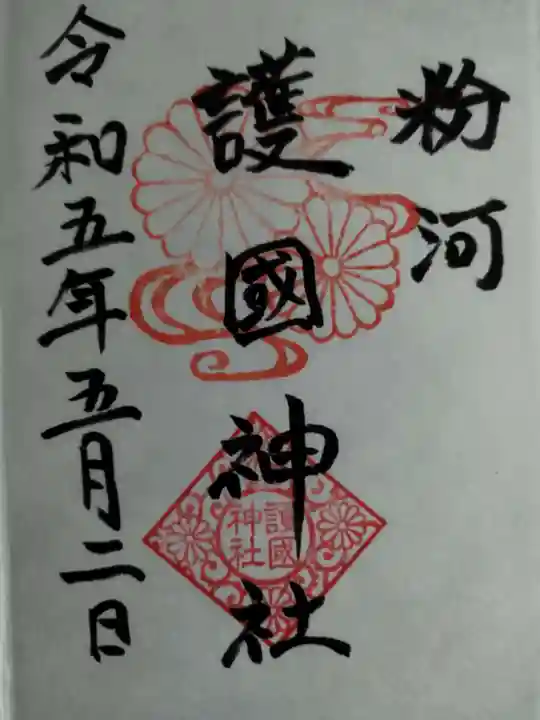 粉河
護國神社
護國
神社
令和五年五月二日